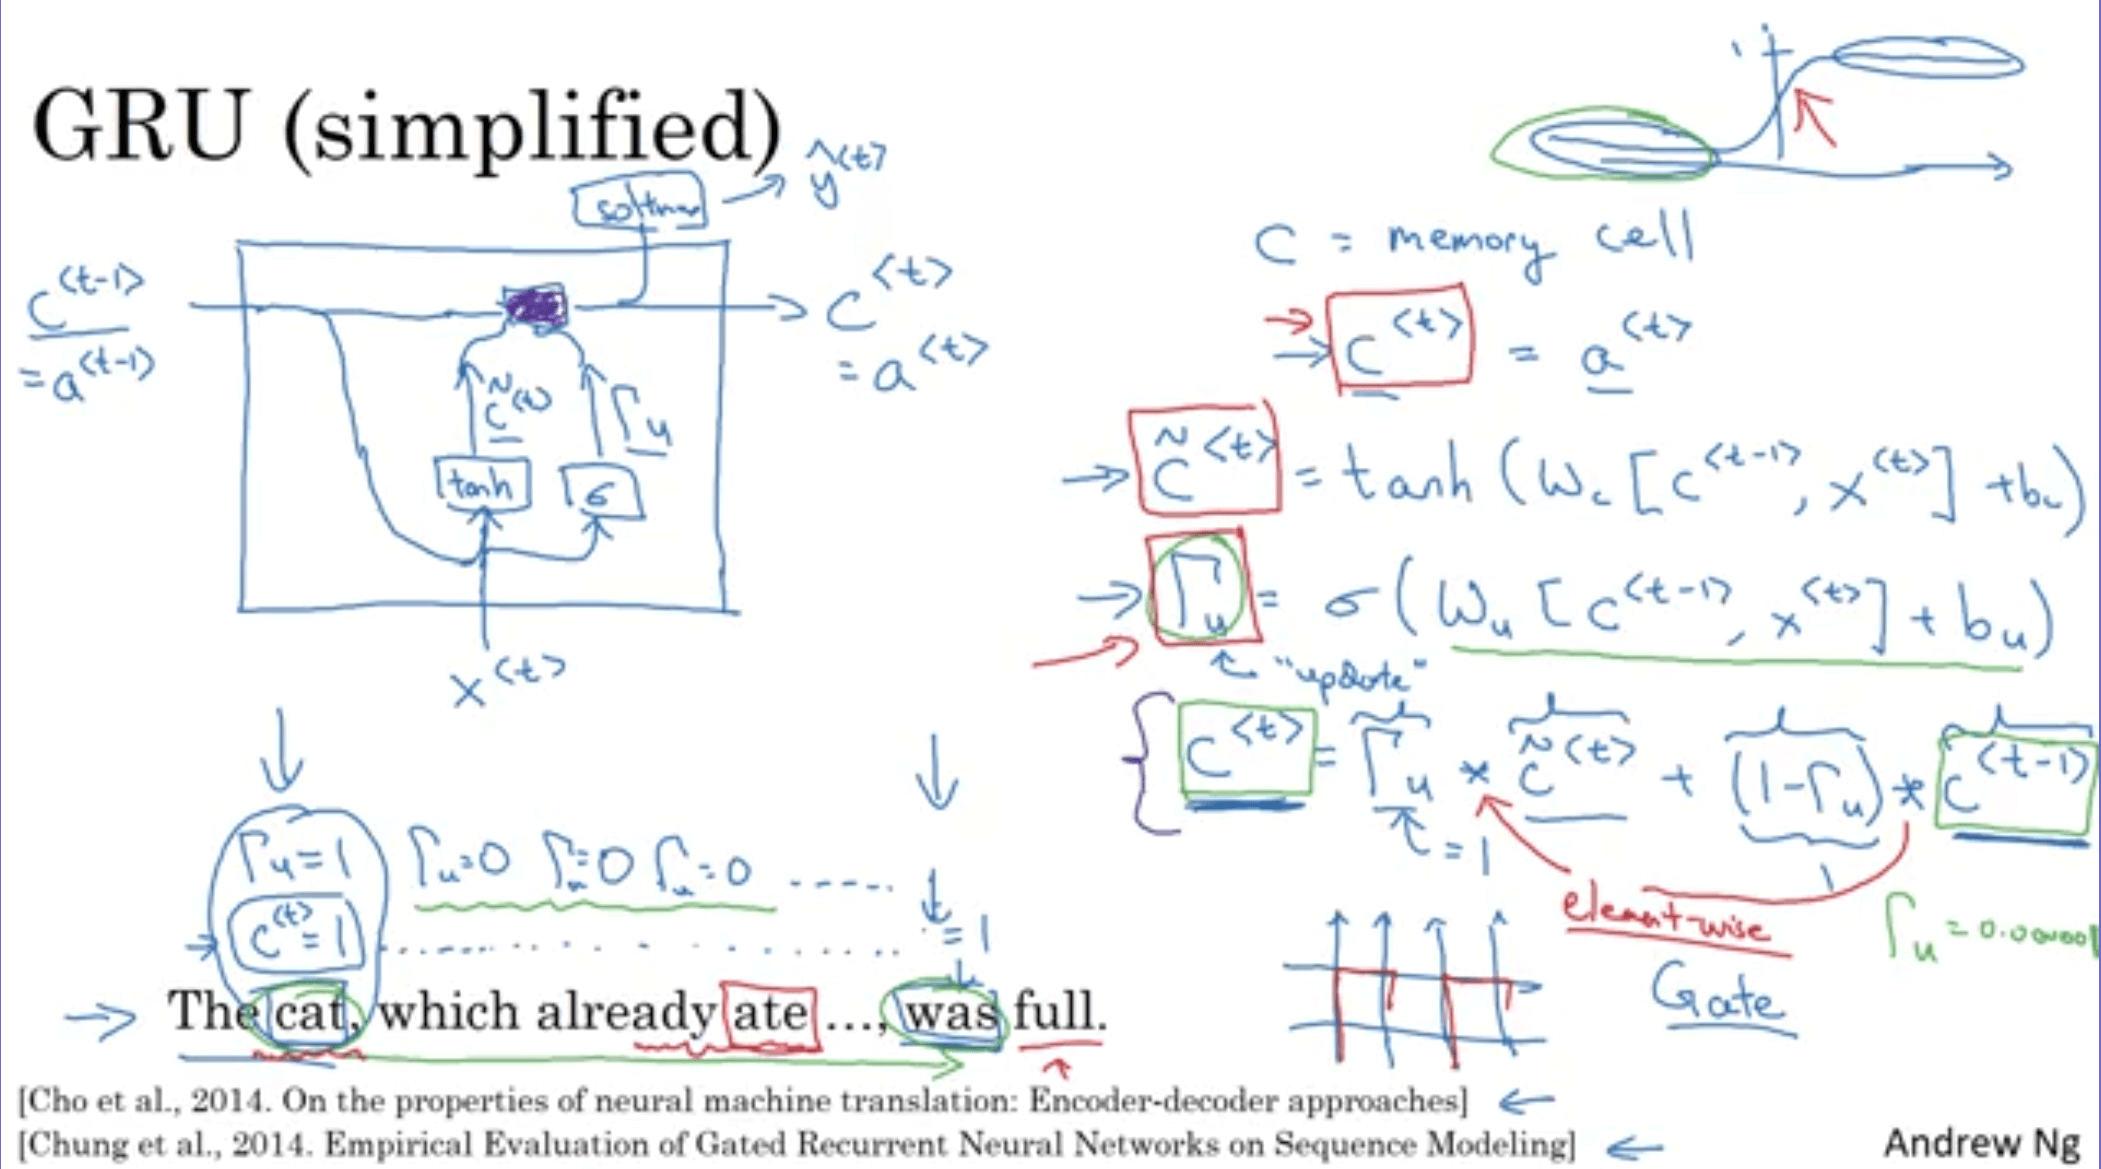 GRU (simplified)
softmax
ŷ<t>
c<t-1>
= a<t-1>
c̃<t>
Γu
tanh
σ
c<t>
= a<t>
x<t>
1
C = memory cell
c<t> = a<t>
c̃<t> = tanh (Wc [c<t-1>, x<t>] + bc)
Γu = σ(Wu [c<t-1>, x<t>] + bu)
"update"
c<t> = Γu * c̃<t> + (1-Γu) * c<t-1>
= 1
1
element-wise
Γu = 0.000001
Gate
Γu=1 Γu=0 Γu=0 Γu=0 -----
c<t>=1 ........ = 1
The cat, which already ate ..., was full.
[Cho et al., 2014. On the properties of neural machine translation: Encoder-decoder approaches]
[Chung et al., 2014. Empirical Evaluation of Gated Recurrent Neural Networks on Sequence Modeling]
Andrew Ng